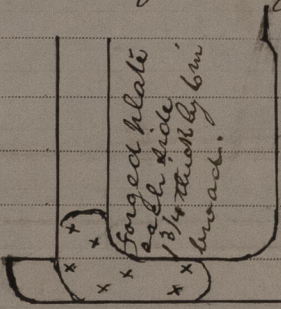 forged plate
each side
1 3/4 thick by 6 in
broad.